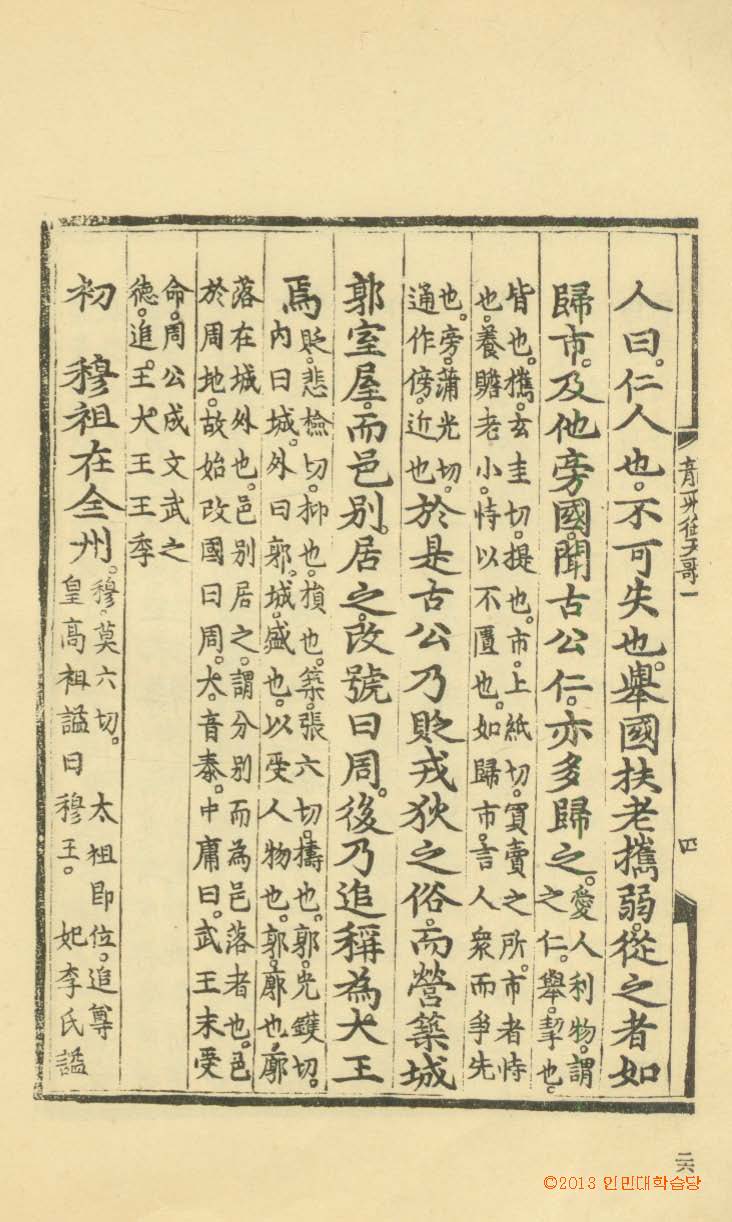 人曰。仁人也。不可失也。舉國扶老攜弱。從之者如
歸市。及他旁國聞古公仁。亦多歸之。愛人利物。謂
之仁。舉。挈也。
皆也。攜。玄圭切。提也。市。上紙切。買賣之所。市者恃
也。養贍老小。恃以不匱也。如歸市。言人衆而爭先
也。旁。蒲光切。
通作傍。近也。於是古公乃貶戎狄之俗。而營築城
郭室屋。而邑別居之。改號曰周。後乃追稱為大王
焉貶。悲檢切。抑也。損也。築。張六切。擣也。郭。光鑊切。
內曰城。外曰郭。城。盛也。以受人物也。郭。廓也。廓
落在城外也。邑別居之。謂分別而為邑落者也。邑
於周地。故始改國曰周。大音泰。中庸曰。武王末受
命。周公成文武之
德。追王大王王季
初 穆祖在全州。穆。莫六切。 太祖卽位。追尊
皇高祖諡曰穆王。 妃李氏諡
龍飛御天歌一
四
二六
©2013 인민대학습당